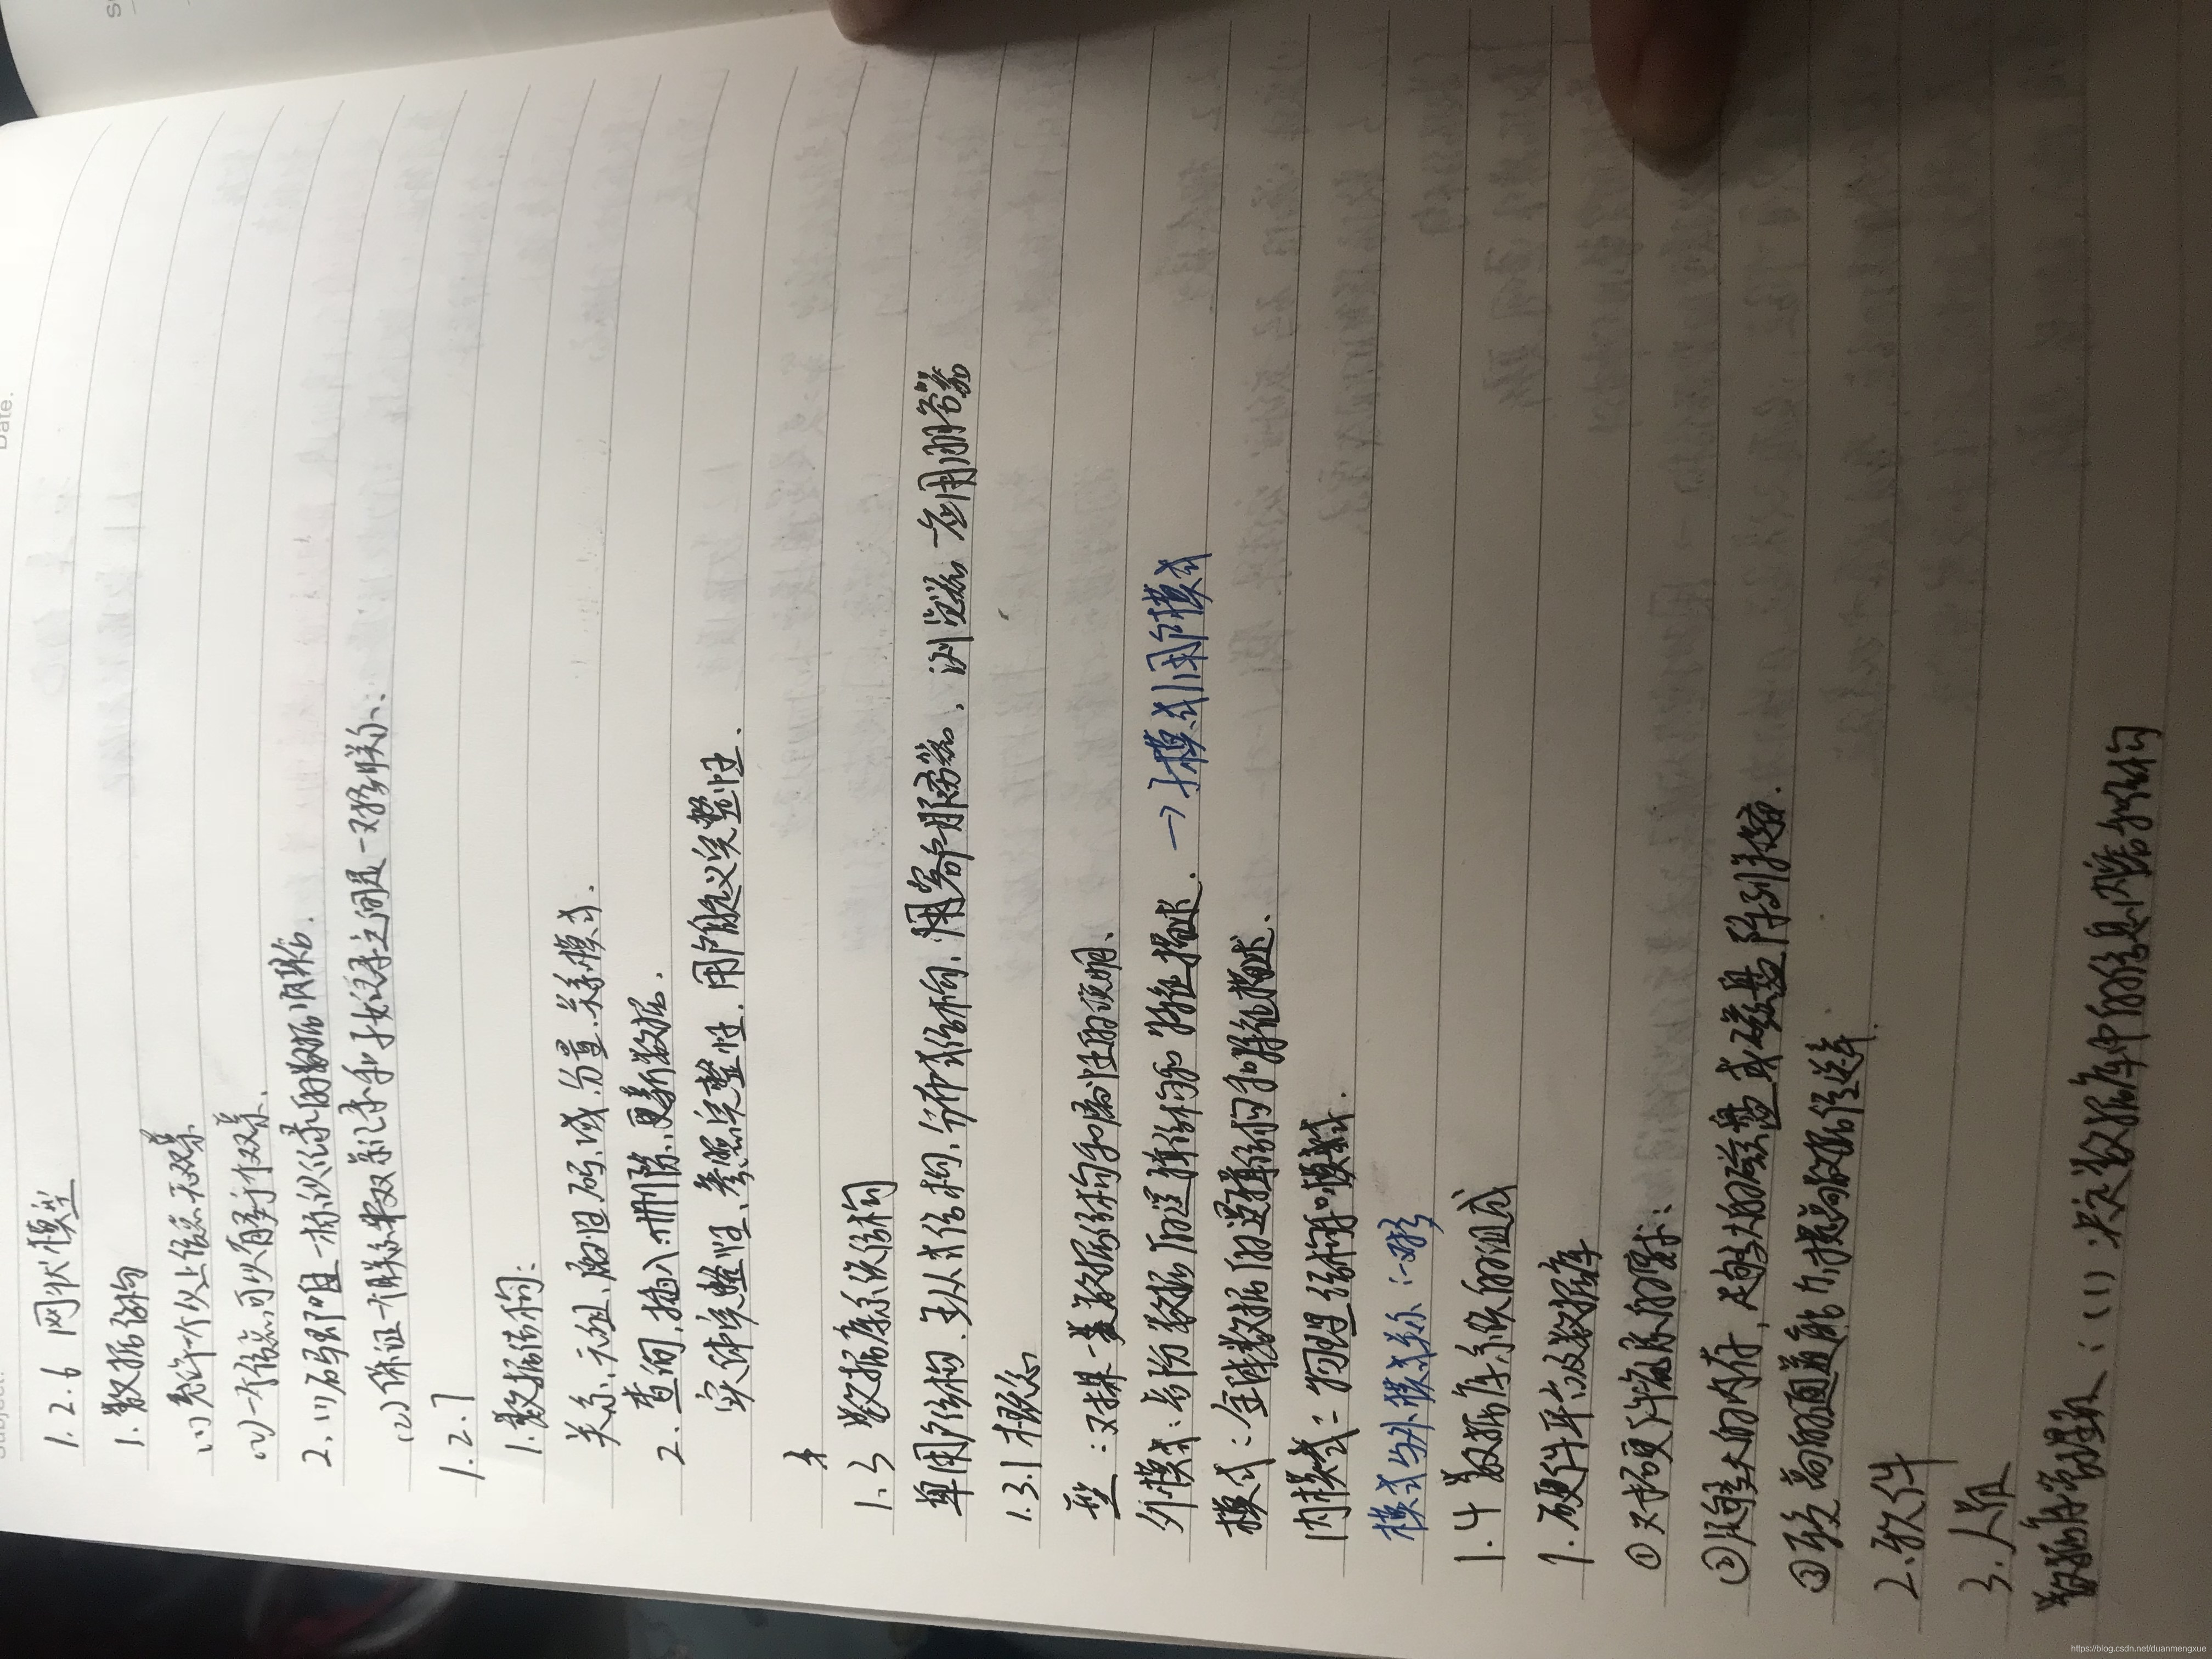 Date.
Subject:
1.2.6 网状模型
1.数据结构
(1)允许一个以上结点无双亲
(2)一个结点可以有多个双亲.
2.(1)码即唯一标识记录的数据项集合.
(2)保证一个联系中双亲记录和子女记录之间是一对多联系、
1.2.7
1.数据结构:
关系、元组、属性、码、域、分量、关系模式.
2.查询、插入、删除、更新数据.
实体完整性、参照完整性、用户定义完整性.
1.3 数据库系统结构
单用户结构、主从式结构、分布式结构、客户服务器、浏览器—应用服务器
1.3.1 概念
型:对某一类数据的结构和属性的说明、
外模式:局部数据的逻辑结构和特征描述. →子模式/用户模式
模式:全体数据的逻辑结构和特征描述.
内模式:物理结构和
模式与外模式关系:一对多
1.4 数据库系统的组成
1.硬件平台及数据库
①对硬件资源的要求:
②足够大的内存,足够大的磁盘或磁盘阵列
③较高的通道能力,提高数据传送率.
2.软件
3.人员
数据库管理员:(1)决定数据库中的信息内容和结构
https://blog.csdn.net/duanmengxue